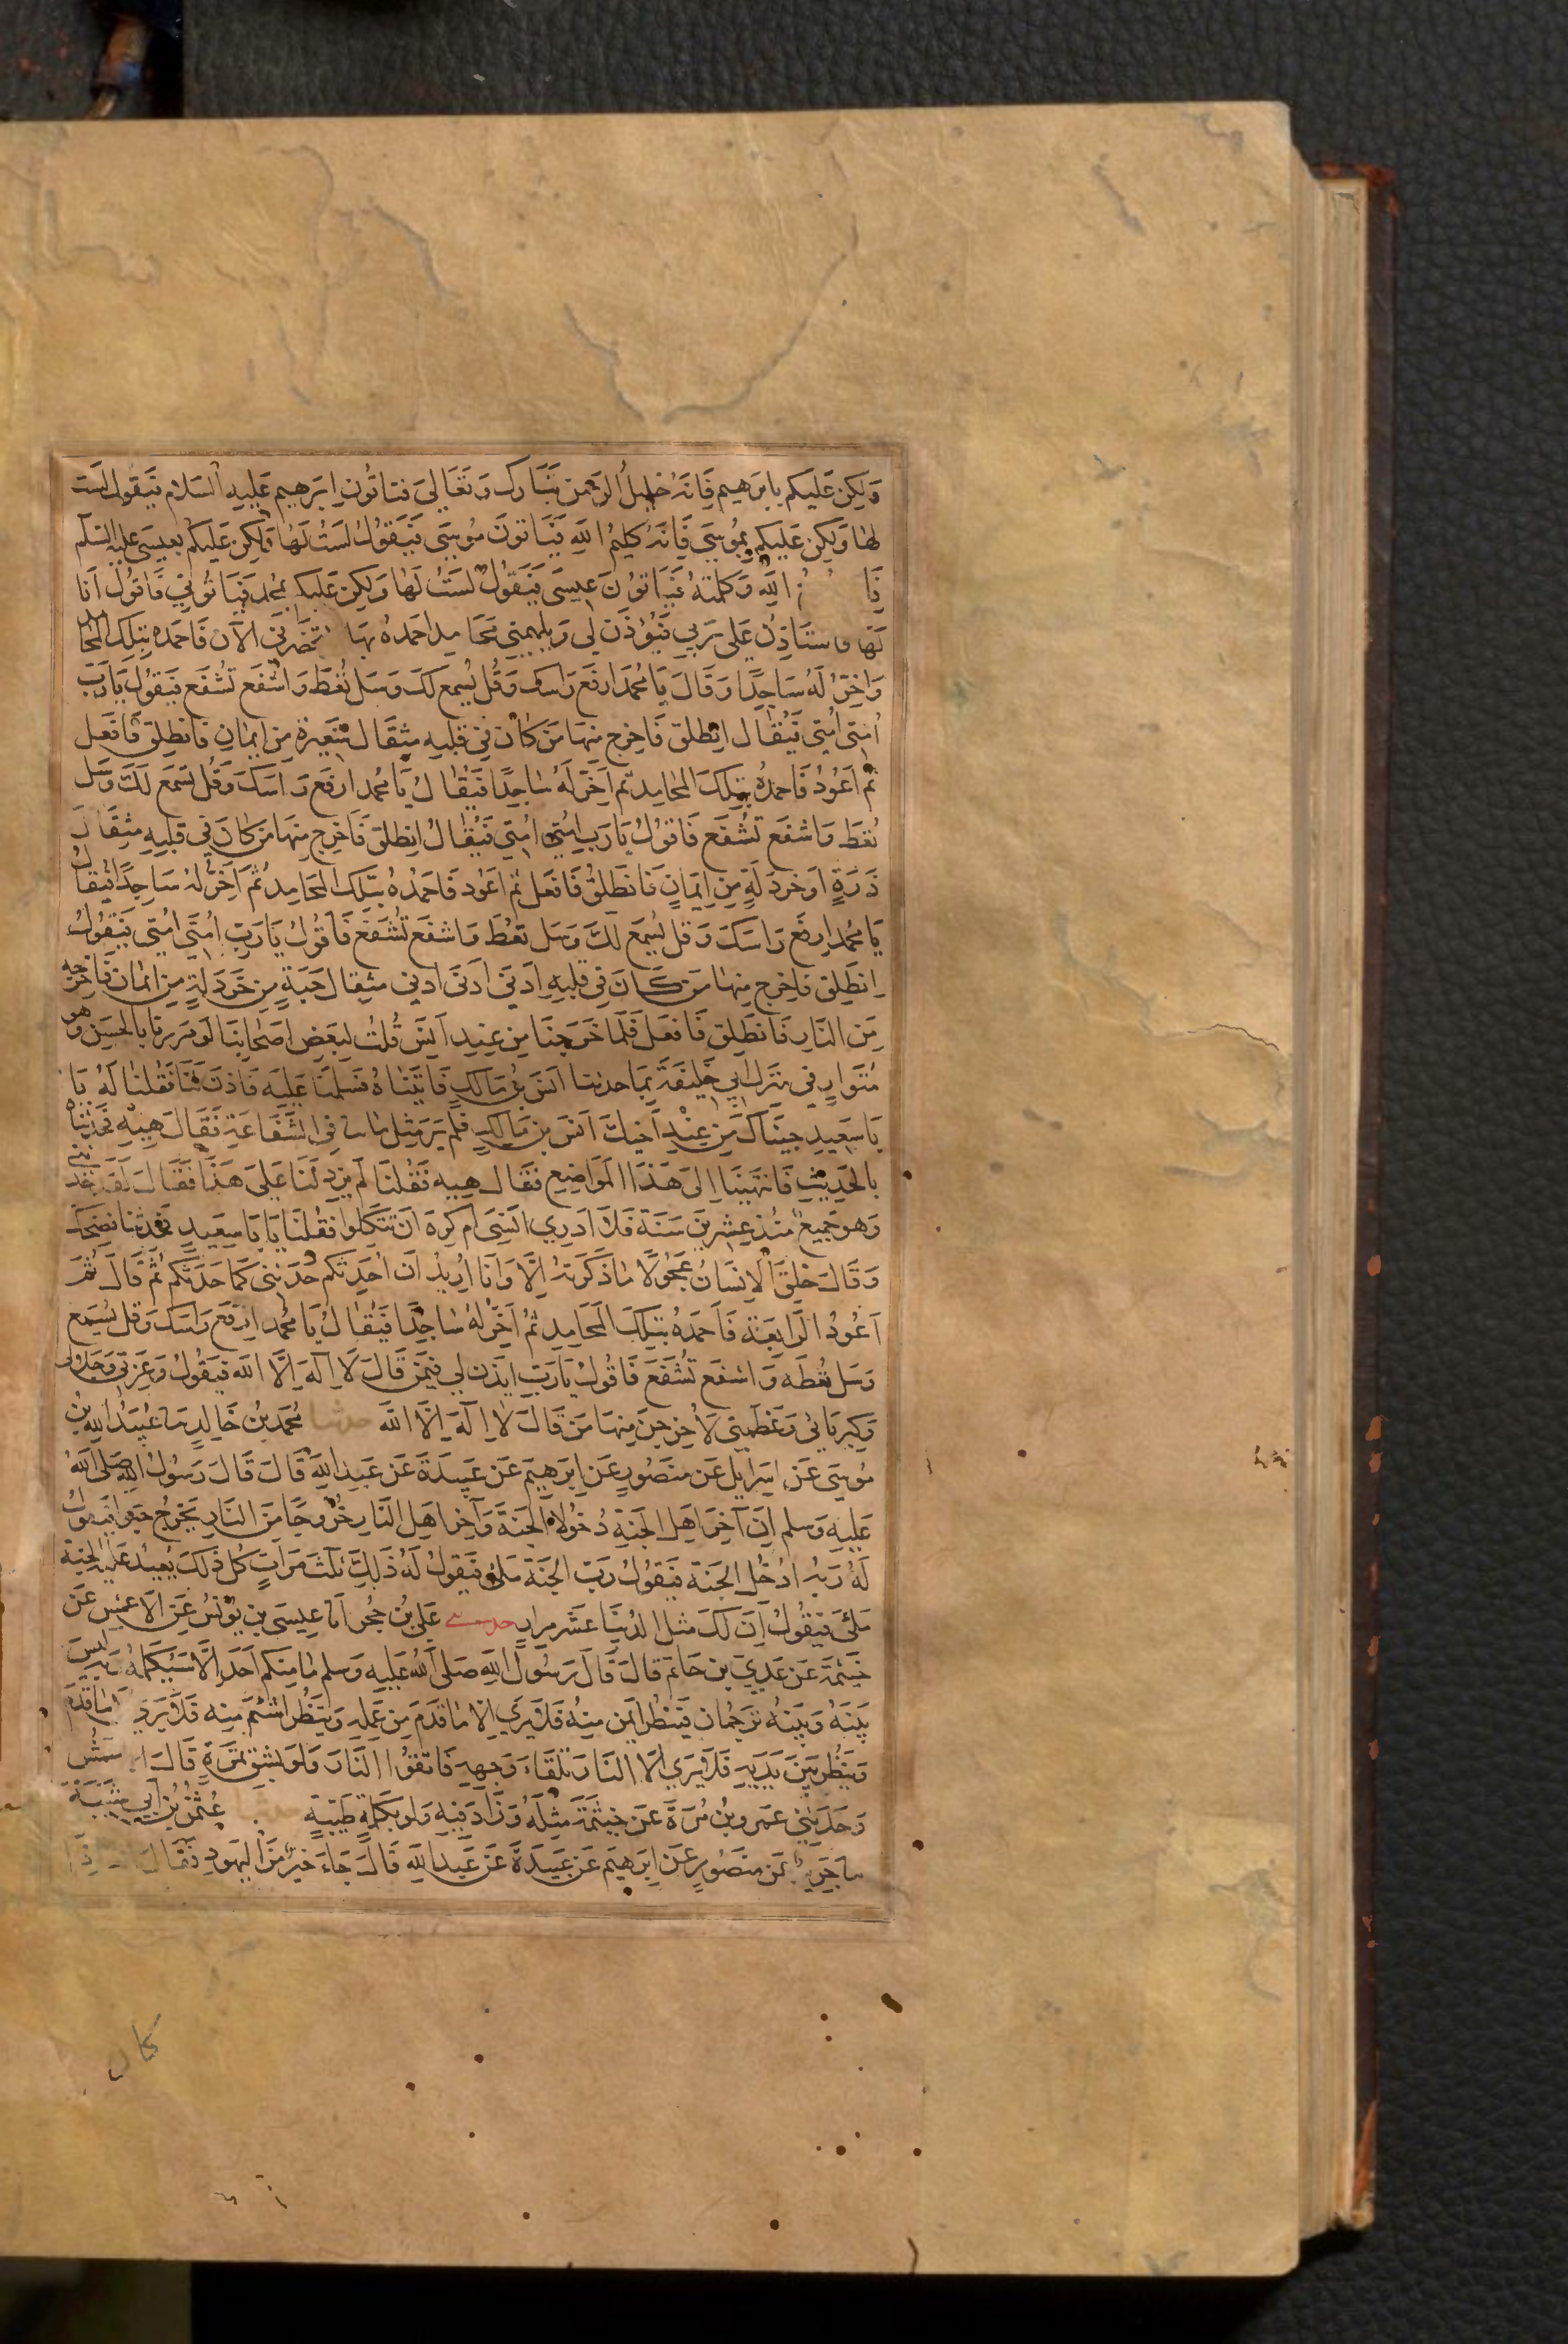 وَلكِن عَليكم بابرهيم فَانه خليلُ الرحمن تبَارك وَتعَالى فياتُون ابرَهيم عَليهِ السَلام فيَقول لَست
لهَا وَلكِن عَليكم بمُوسَى فَانهُ كليمُ اللهِ فيَاتونَ مُوسَى فيَقولُ لسَتُ لَهَا وَلكِن عَليكم بعيسَى عليه السلم
فَا اللهِ وَكلمتهُ فيَاتونَ عِيسَى فيَقولُ لسَتُ لهَا وَلكِن عَليكم بمُحمد فيَاتُوني فاقولُ اَنا
لهَا فاستَاذِنُ عَلى رَبي فيُوذَن لي وَيلهمني مَحَامِد احمَدهُ بهَا تحضرني الآن فَاحمَدهُ بتِلكَ المحامد
وَاخِرُّ لَهُ سَاجدًا وَقَالَ يَا مُحمدُ ارفَع رَاسكَ وَقُل يُسمع لكَ وَسَل تُعطَ وَاشفَع تُشفَع فيَقولُ يَا رَب
اُمتى اُمتِى فيُقَال انطلق فَاخرِج مِنهَا مَن كانَ فِي قَلبِهِ مِثقَال شَعِيرَة مِن ايمَانٍ فَانطلِق فَافعَل
ثُم اَعُودُ فَاحمدُه بتِلكَ المحَامِد ثُم اَخِرّ لهُ سَاجِدًا فيُقَالُ يَا مُحمد ارفَع رَاسكَ وَقُل يُسمَع لكَ وَسَل
تُعطَ وَاشفَع تُشفَع فَاقولُ يَا رَب اُمتي امُتِي فيُقَالُ انطِلق فَاخرِج مِنهَا مَن كَانَ فِي قَلبِهِ مِثقَال
ذَرَةٍ اَو خَردَلَةٍ مِن ايمَانٍ فَانطَلِقُ فَافعَل ثُم اَعُود فَاحمَدُهُ بتِلكَ المحَامِد ثُم اَخِرُّ لهُ سَاجِدًا فيُقَالُ
يَا مُحمد ارفَع رَاسكَ وَقل يُسمَع لكَ وَسَل تعطَ وَاشفَع تُشَفَع فَاقُولُ يَا رَبِ اُمتَي اُمتِي فيَقُولُ
اِنطَلِق فَاخرِج مِنهَا مَن كَانَ فِي قَلبِهِ اَدنَى اَدنَى اَدنى مثقِال حَبَةٍ مِن خَردَلةٍ مِن ايمَان فَاخرجه
مِن النَارِ فَانطَلِق فَافعَل فَلمَا خَرَجنَا مِن عِندِ اَنسٍ قُلتُ لبَعضِ اَصحَابنَا لَو مَررنَا بالحسَنِ وَهو
مُتَوارٍ فِي مَنزل اَبي خَليفَةَ بمَا حدثنا انس بن مَالكٍ فَاتينَاهُ فَسلمنَا عَليهِ فَاذنَ لنَا فَقُلنَا لَهُ يَا
يَا سَعِيدٍ جئنَاكَ مِن عِندِ اَخيكَ اَنَس بن مَالكٍ فلَم يَر مِثل مَا حدثنا فِي الشَفَاعَةِ فَقَالَ هِيهِ فحَدثنَاهُ
بالحَدِيثِ فَانتهَينَا الى هَذَا الموَاضِعِ فقَال هِيهِ فَقُلنَا لَم يَزد لَنَا عَلَى هَذَا فَقَالَ لَقَد حَدثنى
وَهو جَميع مُنذ عِشرينَ سَنَة فَلا اَدرِي انَسِي اَم كرِهَ اَن تتكِلوا فقُلنَا يَا يَا سعِيدٍ فحدثنا فضَحكَ
وَقَالَ خلِقَ الانسَانُ عَجُولاً مَا ذَكرتهُ اِلا وَانَا اُريدُ اَن احَدِثكم حَدثنى كمَا حَدَثكم ثُم قَالَ ثُمَ
اَعُودُ الرَابعَة فَاَحمَدهُ بتِلكَ المَحَامِد ثُم اَخِرُّ لهُ سَاجِدًا فيُقَالُ يَا مُحمد ارفَع رَاسَك وَقل يُسمَع
وَسَل تُعطَه وَاشفَع تُشَفَع فَاقُولُ يَا رَبِ ايذن لي فِيمَن قَالَ لَا اِلهَ اِلا الله فيَقُولُ وَعِزتي وَجَلالى
وَكِبريَائي وَعَظمِتي لاُخرِجنَ مِنهَا مَن قَالَ لا الهَ اِلا الله حدثنا مُحمَدُ بنُ خَالِدٍ ثنا عُبَيدُ الله بن
مُوسَى عَن اسِرَايل عَن منصُورٍ عَن ابرَهيم عَن عَبيدَة عَن عَبدِ اللهِ قَالَ قَالَ رَسُولُ اللهِ صَلى اللهُ
عَليهِ وَسلم اِنَ آخِرَ اَهلِ الجنةِ دُخولاً الجَنةَ وَآخِر اَهلِ النَارِ خُروجًا مِنَ النَارِ يَخرُجُ حَبوا فيَقولُ
لَهُ رَبهُ ادُخل الجَنةَ فيَقولُ رَب الجَنة مَلئى فيَقولُ لَهُ ذَلكَ ثلثَ مَراتٍ كُل ذلكَ يُعيدُ عَليهِ الجنة
مَلئى فيَقُولُ اِنَ لكَ مثلَ الدُنيَا عَشَر مِرارٍ حدثنى عَلي بنُ حُجر انا عِيسَى بن يُونُس عَن الاعمش عَن
خيثمَة عَن عَدِي بن حَاتم قَالَ قَالَ رَسُولُ اللهِ صَلى اللهُ عَليهِ وَسلم مَا مِنكم اَحد اِلا سَيُكلمُهُ رَبه ليسَ
بَينَهُ وَبَينَهُ تَرجُمَان فينظُرُ ايمَن مِنهُ فَلا يَرَي الا مَا قدَمَ مِن عَملِهِ وَينظُر اشئم مِنه فَلا يَري الا مَا قدَّم
وَينظُر بَينَ يَدَيهِ فَلا يَرَي الا النَار تلقَاءَ وَجههِ فاتقُوا النَارَ وَلَو بشِق تَمرَةٍ قَالَ الاعمش
وَحَدَثِني عَمرو بنُ مُرَةَ عَن خيثمَةَ مِثلَهُ وَزَادَ فِيهِ وَلو بكلمةٍ طَيبةٍ حدثنا عُثمنُ بنُ اَبي شَيبَة
ثنا جَرير عَن منصُورٍ عَن ابرَهيم عَن عَبيدَةَ عَن عَبد اللهِ قَالَ جَاءَ حَبر مِن اليهُودِ فقَالَ انه اذَا
كان